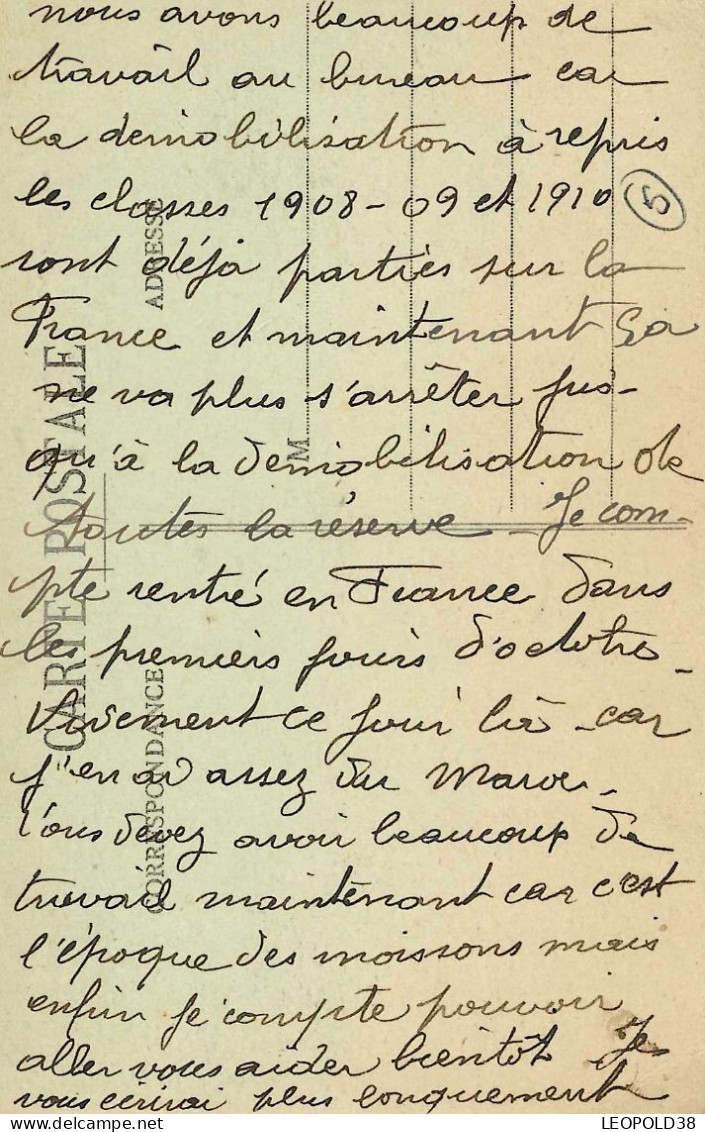 nous avons beaucoup de
travail au bureau car
la demobilisation à repris
les classes 1908-09 et 1910
5
sont déjà partiés sur la
France et maintenant ça
ne va plus s'arrêter jus-
qu'à la demobilisation de
toutes la réserve - Je com-
pte rentré en France dans
les premiers jours d'octobre -
Vivement ce jour là - car
j'en ai assez du Maroc -
Vous devez avoir beaucoup de
travail maintenant car c'est
l'époque des moissons mais
enfin je compte pouvoir
aller vous aider bientôt Je
vous ecrirai plus longuement
CARTE POSTALE
CORRESPONDANCE
ADRESSE
M
LEOPOLD38